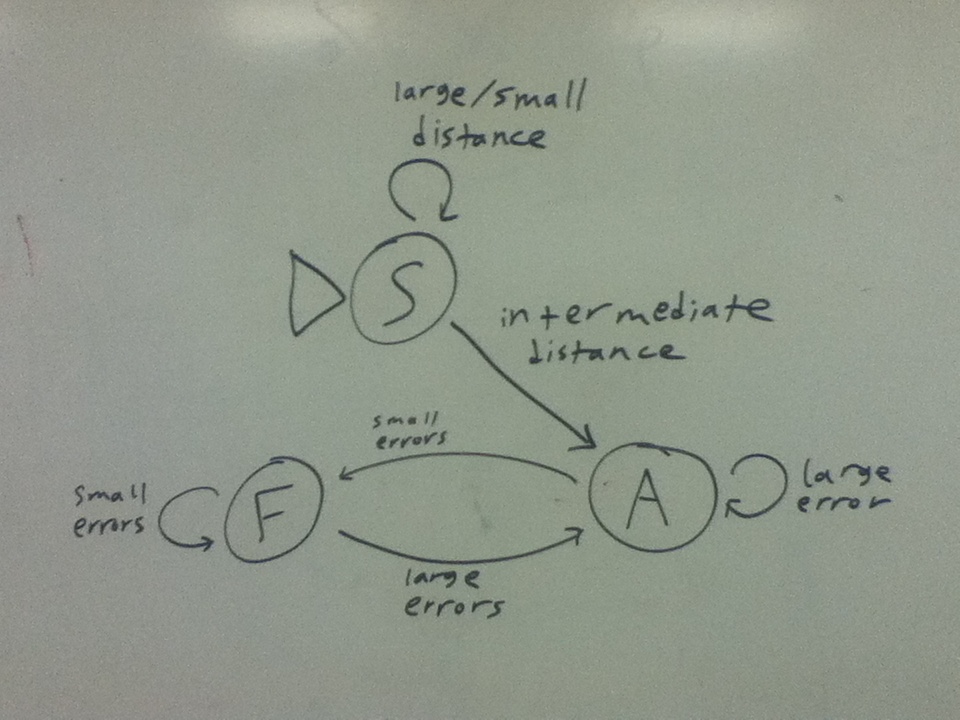 large/small
distance
S
intermediate
distance
small
errors
small
errors
F
A
large
error
large
errors